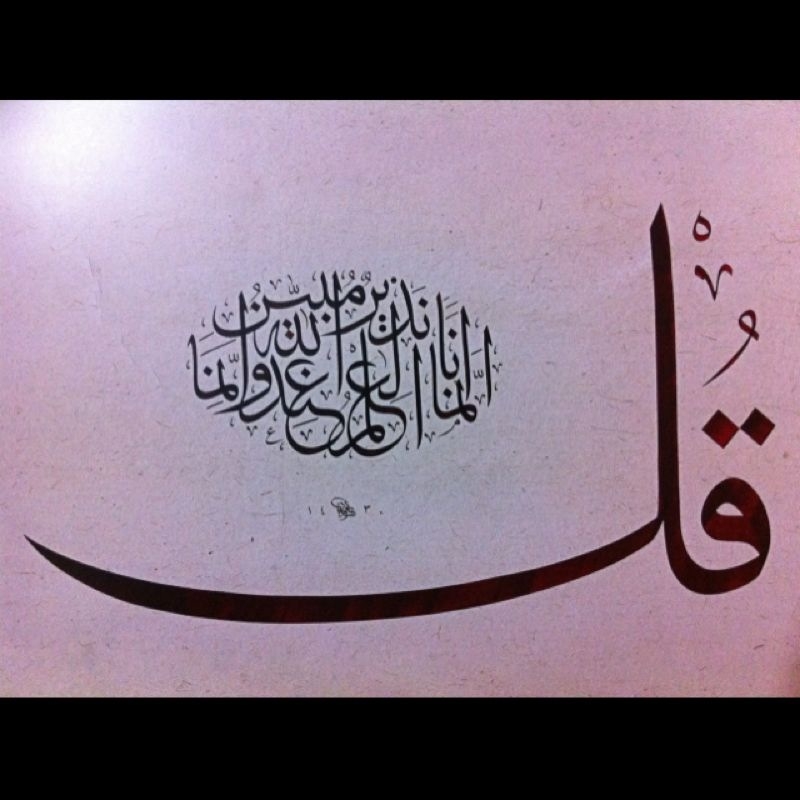 قُلْ
اِنَّمَا الْعِلْمُ عِنْدَ اللّٰهِ وَاِنَّمَا
اَنَا نَذِيرٌ مُبِينٌ
١٤ ٣٠